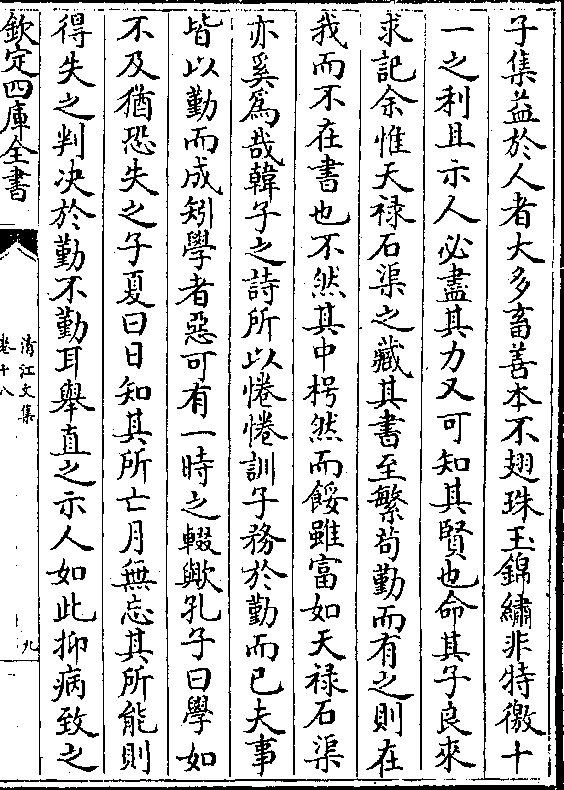 子集益於人者大多畜善本不翅珠玉錦繡非特徼十
一之利且示人必盡其力又可知其賢也命其子良來
求記余惟天禄石渠之藏其書至繁苟勤而有之則在
我而不在書也不然其中枵然而餒雖富如天禄石渠
亦奚為哉韓子之詩所以惓惓訓子務於勤而已夫事
皆以勤而成矧學者惡可有一時之輟歟孔子曰學如
不及猶恐失之子夏曰日知其所亡月無忘其所能則
得失之判决於勤不勤耳舉直之示人如此抑病致之
欽定四庫全書
清江文集
卷十八
九